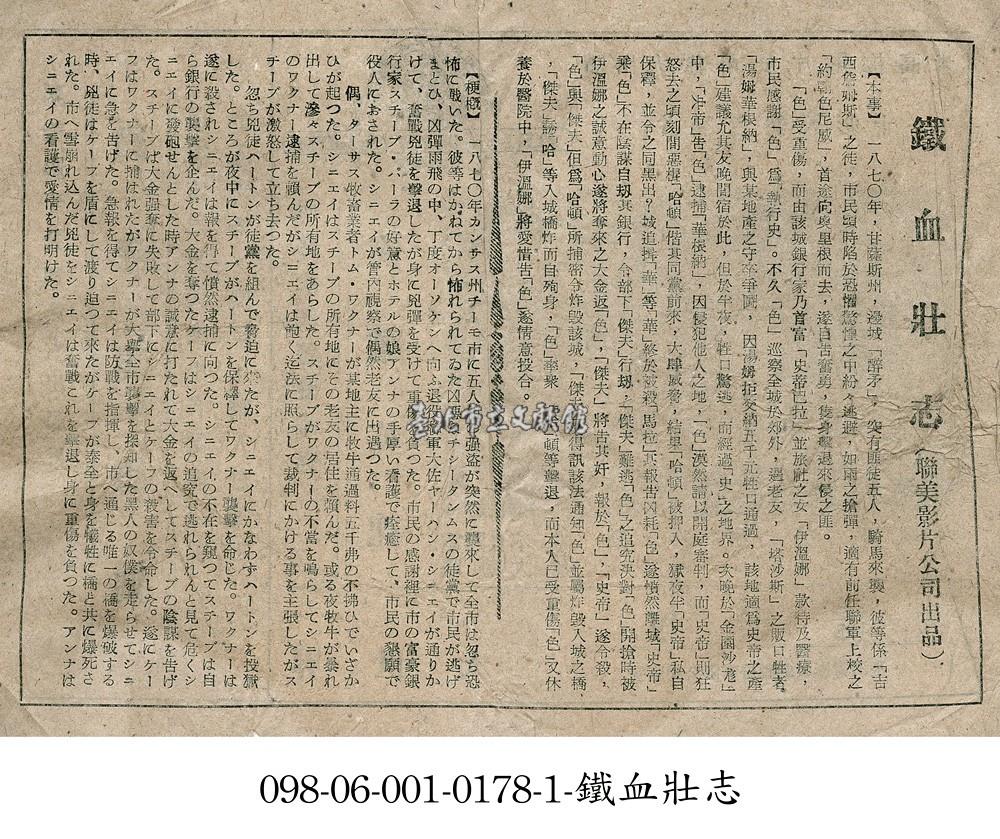 鐵血壯志(聯美影片公司出品)
【本事】一八七〇年,甘薩斯州,邊城「醉矛」,突有匪徒五人,騎馬來襲,彼等係「吉
西詹姆斯」之徒,市民頓時陷於恐懼驚惶之中紛々逃避,如雨之搶彈,適有前任聯軍上校之
「約翰色尼威」,首途向奧里根而去,遂自告奮勇,隻身擊退來侵之匪。
「色」受重傷,而由該城銀行家乃首富「史蒂巴拉」並旅社之女「伊溫娜」款待及醫療,
市民感謝「色」爲「執行史」。不久「色」巡察全城於郊外,遇老友,「塔沙斯」之販口牲者
「湯姆華根納」與某地產之守率爭圃,因湯姆拒交納五千元牲口通過,該地適爲史帝之產
「色」建議尤其友晚間宿於此,但於半夜,牲口驚逃,而經過「史」之地界。次晚於「金圖沙尨」
中,「史帝」告「色」逮捕「華根納」,因侵犯他人之地,「色」漠然請以開庭審判,而「史帝」則狂
怒去之頃刻間惡棍「哈頓」偕其同黨前來,大肆威脅,結果「哈頓」被押入,獄夜半「史帝」私自
保釋,並令之同黑出?城追捕「華」等「華」終於被殺「馬拉」其報告凶耗「色」遂憤然離城「史帝」
乘「色」不在陰謀自刼其銀行,令部下「傑夫」行刼,「傑夫」難逃「色」之追究決對「色」開搶時被
伊溫娜之誠意動心遂將奪來之大金返「色」,「傑夫」將吿其奸,報於「色」,「史帝」遂令殺,
「色」與「傑夫」但爲「哈頓」所捕密令炸毀該城,「傑夫」
得訊該法通知「色」並囑炸毀入城之橋
,「傑夫」誘「哈」等入城橋炸而自殉身,「色」率衆
頓等擊退,而本人已受重傷「色」又休
養於醫院中,「伊溫娜」將愛惜吿「色」遂倩意投合。
【梗概】一八七〇年カンサス州チーモ市に五人
强盗が突然に襲來して全市は忽ち恐
怖に戰いた。彼等はかねてから怖れられてゐた凶惡
チシータンムスの徒黨で市民が逃げ
まとひ、凶彈雨飛の中、丁度オーソケンへ向ふ退役
軍大佐ヤーハン・シニエイが通りか
けて、奮戰兇徒を擊退したが身に兇彈を受けて重
を負つた。市民の感謝裡に市の富豪銀
行家スチーブ・バーラの好意とホテルの娘アンナの手厚い看護で痊癒して、市民の懇願で
役人におされた。シニエイが管內視察で偶然老友に出遇つた。
偶、ターサス牧畜業者トム・ワクナーが某地主に牧牛通過料五千弗の不拂ひでいざか
ひが起つた。シニエイはスチーブの所有地にその老友の居住を賴んだ。或る夜牧牛が暴れ
出して滲々スチーブの所有地をあらした。スチーブがワクナーの不當を鳴らしてシニエイ
のワクナー逮捕を賴んだがシニエイは飽く迄法に照らして裁判にかける事を主張したがス
チーブが激怒して立ち去つた。
忽ち兇徒ハートンが徒黨を組んで脅迫に來たが、シニエイにかなわずハートンを投獄
した。ところが夜中にスチーブがハートンを保釋してワクナー襲擊を命じた。ワクナーは
遂に殺されシニエイは報を得て憤然逮捕に向つた。シニエイの不在を窺つてスチーブは自
ら銀行の襲擊を企んだ。大金を奪つたケーブはシニエイの追究で逃れられんと見て危くシ
ニエイに發砲せんとした時アンナの誠意に打たれて大金を返へしてスチーブの陰謀を吿げ
た。スチーブは大金强奪に失敗して部下にシニエイとケーブの殺害を令命した。遂にケー
フは捕はれたがワクナーが大擧全市襲擊を探知した黑人の奴僕を走らせてシニ
エイに急を吿げた。急報を得てシニエイは防戰を指揮し、市へ通じる唯一の橋を爆破する
時、兇徒はケーブを盾にして渡り迫つて來たがケーブが泰全と身を犧牲に橋と共に爆死さ
れた。市へ雪崩れ込んだ兇徒をシニエイは奮戰これを擊退し身に重傷を負つた。アンナは
シニエイの看護で愛情を打明けた。
臺北市立文獻館
098-06-001-0178-1-鐵血壯志